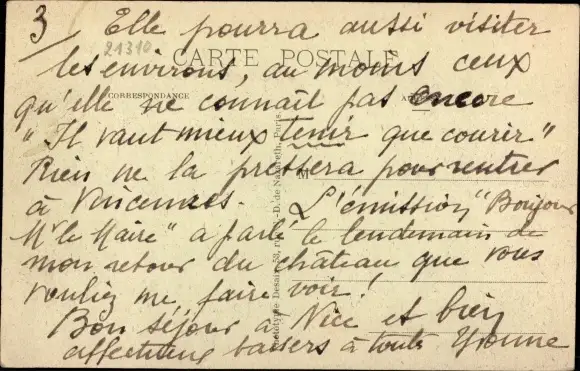 3/ Elle pourra aussi visiter
21310
CARTE POSTALE
les environs, au moins ceux
CORRESPONDANCE
qu'elle ne connaît pas encore
"Il vaut mieux tenir que courir"
Rien ne la pressera pour rentrer
M
à Vincennes. L'émission "Bonjour
Mr le Maire" a parlé le lendemain de
mon retour du château que vous
vouliez me faire voir!
Bon séjour à Nice et bien
affectueux baisers à toute Yvonne
Phototypie Desaix, 53, rue N.-D. de Nazareth, Paris